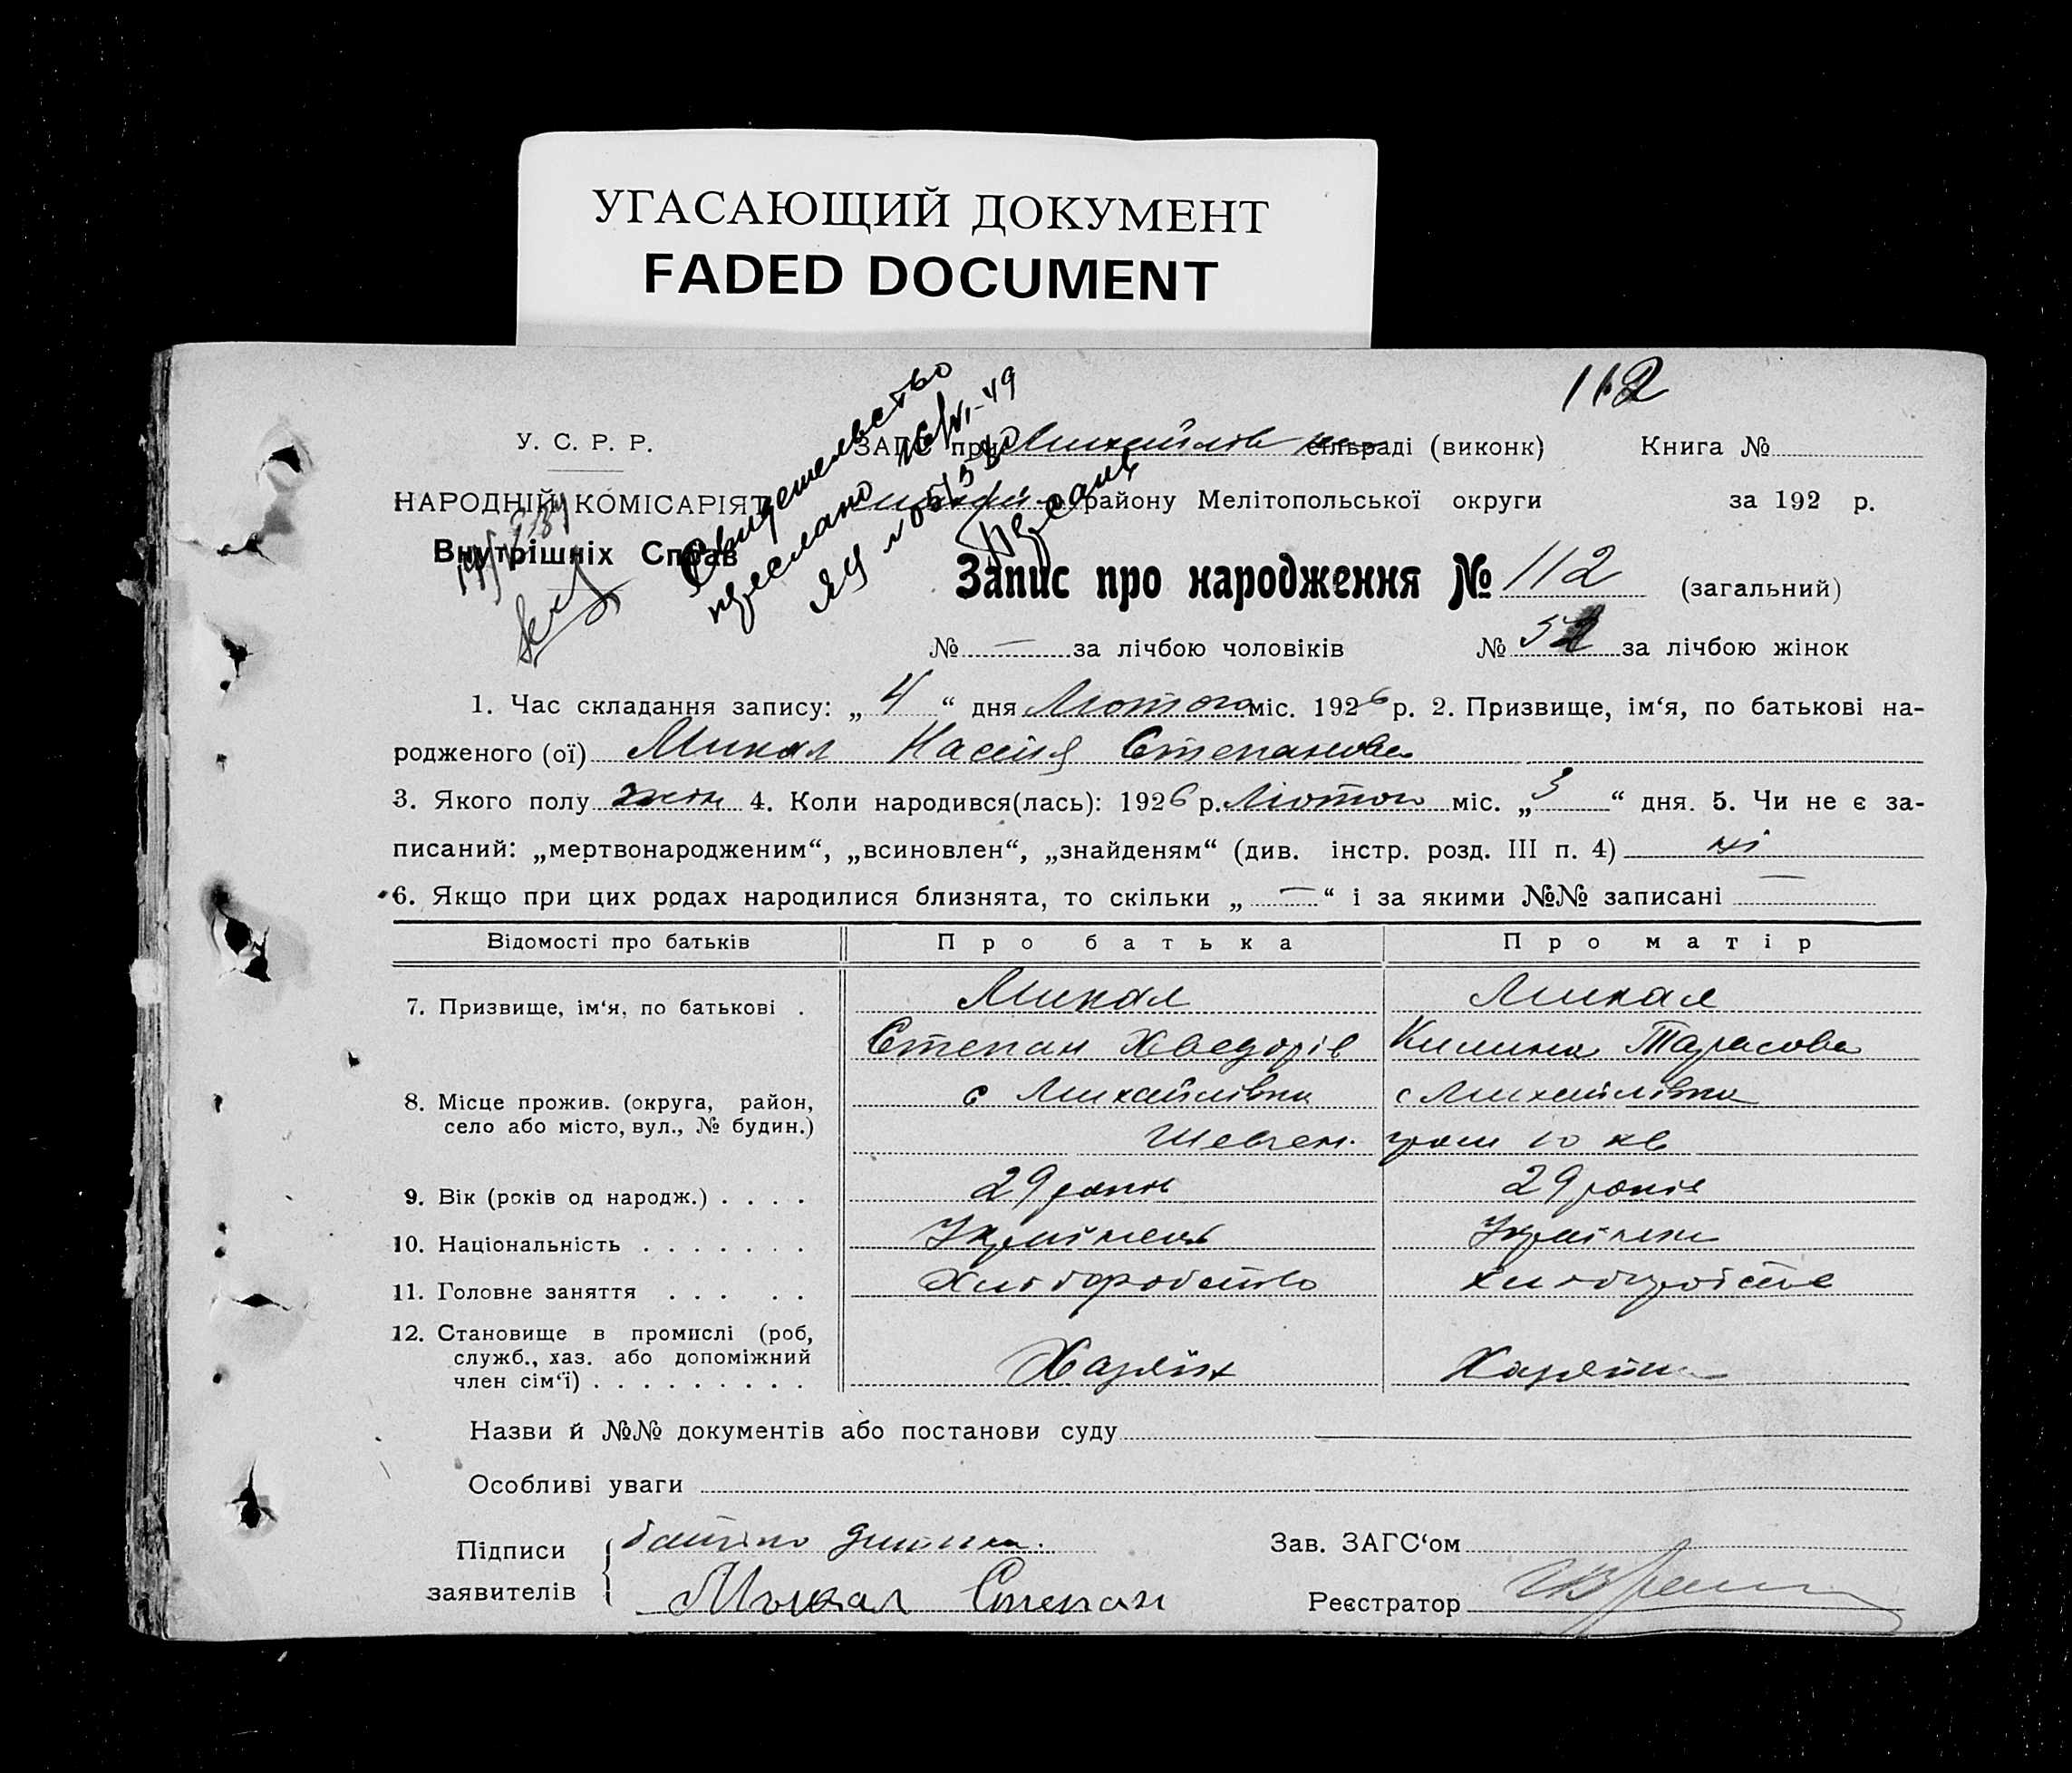 УГАСАЮЩИЙ ДОКУМЕНТ
FADED DOCUMENT
112
У. С. Р. Р.
ЗАГС при Михайлів сільраді (виконк)
Книга №
НАРОДНІЙ КОМІСАРІЯТ
району Мелітопольської округи
за 192 р.
Внутрішніх Справ
Свидетельство
преслано
ЯЦ №
Запис про народження № 112 (загальний)
№ — за лічбою чоловіків
№ 52 за лічбою жінок
1. Час складання запису: „ 4 “ дня Лютого міс. 1926 р. 2. Призвище, ім‘я, по батькові на-
родженого (ої) Микал Настя Степанова
3. Якого полу жін 4. Коли народився(лась): 1926 р. Лютого міс. „ 3 “ дня. 5. Чи не є за-
писаний: „мертвонародженим“, „всиновлен“, „знайденям“ (див. інстр. розд. III п. 4) ні
6. Якщо при цих родах народилися близнята, то скільки „ — “ і за якими №№ записані —
Відомості про батьків
Про батька
Про матір
7. Призвище, ім‘я, по батькові .
Микал
Микал
Степан Хведорів
Килина Тарасова
8. Місце прожив. (округа, район,
село або місто, вул., № будин.)
с Михайлівка
с Михайлівка
Шевчен. гром 10 кв
9. Вік (років од народж.) . . . .
29 років
29 років
10. Національність . . . . . . .
Українець
Українка
11. Головне заняття . . . . .
Хліборобство
хліборобство
12. Становище в промислі (роб,
служб., хаз. або допоміжний
член сім‘ї) . . . . . . . . .
Хазяїн
Хазяйка
Назви й №№ документів або постанови суду
Особливі уваги
Підписи
заявителів
батько дитини.
Микал Степан
Зав. ЗАГС‘ом
Реєстратор